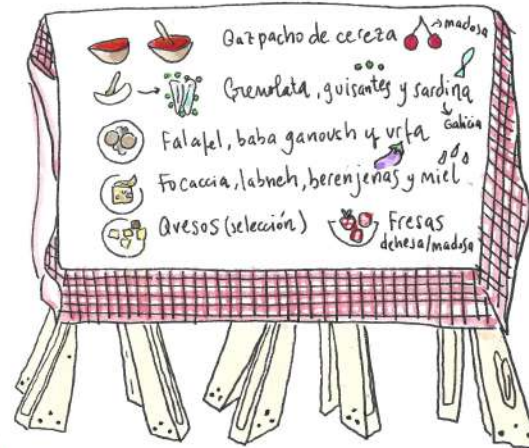 Gazpacho de cereza
madosa
Gremolata, guisantes y sardina
Galicia
Falafel, baba ganoush y urfa
Focaccia, labneh, berenjenas y miel
Quesos (selección)
Fresas
dehesa/madosa